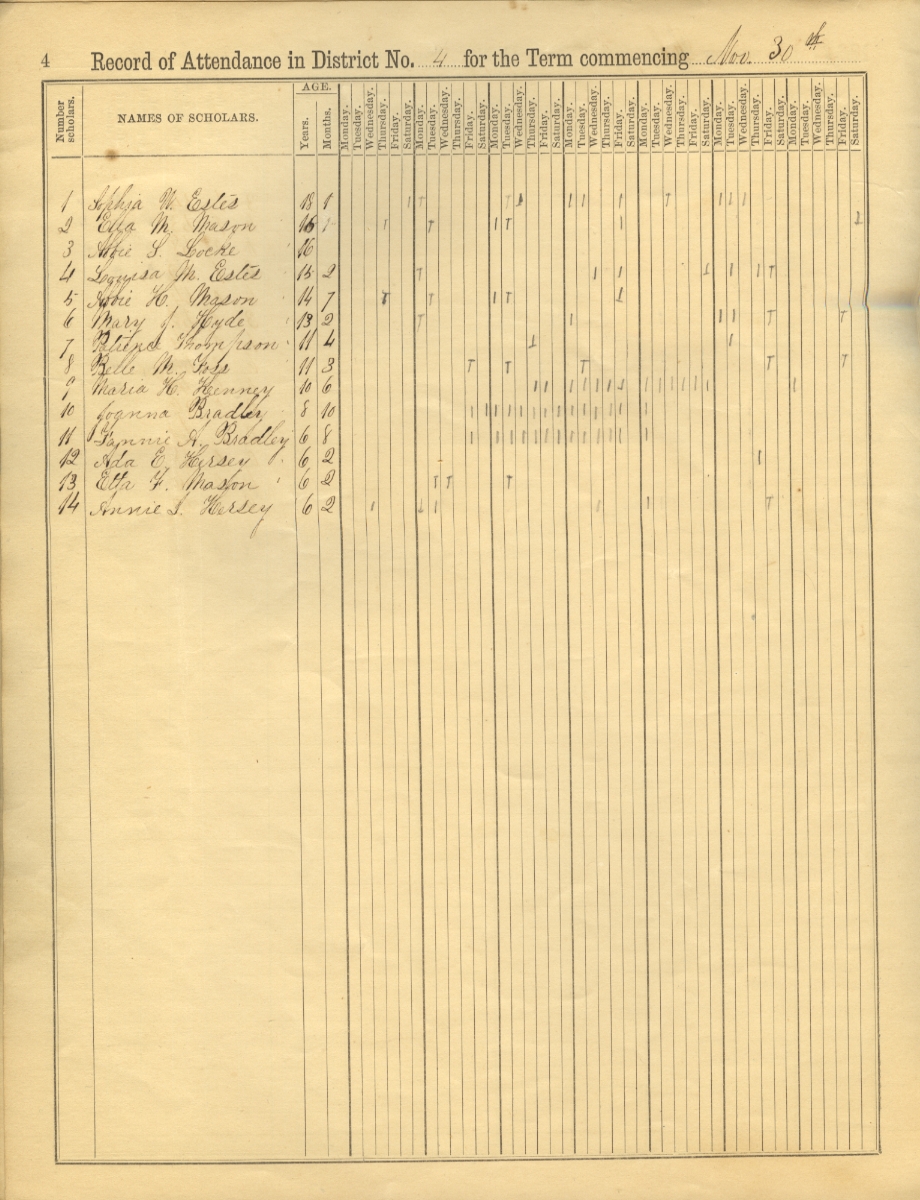 4 Record of Attendance in District No. 4 for the Term commencing Nov. 30th
Number scholars. NAMES OF SCHOLARS. AGE. Years. Months. Monday. Tuesday. Wednesday. Thursday. Friday. Saturday. Monday. Tuesday. Wednesday. Thursday. Friday. Saturday. Monday. Tuesday. Wednesday. Thursday. Friday. Saturday. Monday. Tuesday. Wednesday. Thursday. Friday. Saturday. Monday. Tuesday. Wednesday. Thursday. Friday. Saturday. Monday. Tuesday. Wednesday. Thursday. Friday. Saturday. Monday. Tuesday. Wednesday. Thursday. Friday. Saturday.
1 Sophia W. Estes 18 1
2 Ella M. Mason 16 1
3 Abbie S. Locke 16
4 Louisa M. Estes 15 2
5 Abbie H. Mason 14 7
6 Mary J. Hyde 13 2
7 Patience Thompson 11 4
8 Belle M. Foss 11 3
9 Maria H. Henney 10 6
10 Joanna Bradley 8 10
11 Fannie A. Bradley 6 8
12 Ada E. Hersey 6 2
13 Etta F. Mason 6 2
14 Annie S. Hersey 6 2